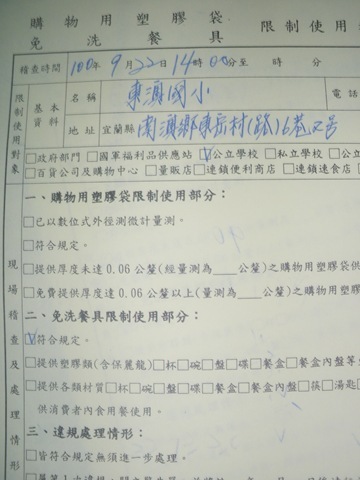 購物用塑膠袋
免洗餐具
限制使用
稽查時間 100年9月22日14時00分至 時 分
限制使用對象
基本資料
名稱 東澳國小
電話
地址 宜蘭縣南澳鄉東岳村(路)6巷2號
□政府部門 □國軍福利品供應站 ☑公立學校 □私立學校 □公立
□百貨公司及購物中心 □量販店 □連鎖便利商店 □連鎖速食店
現場稽查及處理情形
一、購物用塑膠袋限制使用部分：
□已以數位式外徑測微計量測。
□符合規定。
□提供厚度未達 0.06 公釐(經量測為____公釐)之購物用塑膠袋供
□免費提供厚度達 0.06 公釐以上(量測為____公釐)之購物用塑膠
二、免洗餐具限制使用部分：
☑符合規定。
□提供塑膠類(含保麗龍)□杯□碗□盤□碟□餐盒□餐盒內盤等
□提供各類材質□杯□碗□盤□碟□餐盒□餐盒內盤□筷□湯匙
供消費者內食用餐使用。
三、違規處理情形：
□皆符合規定無須進一步處理。